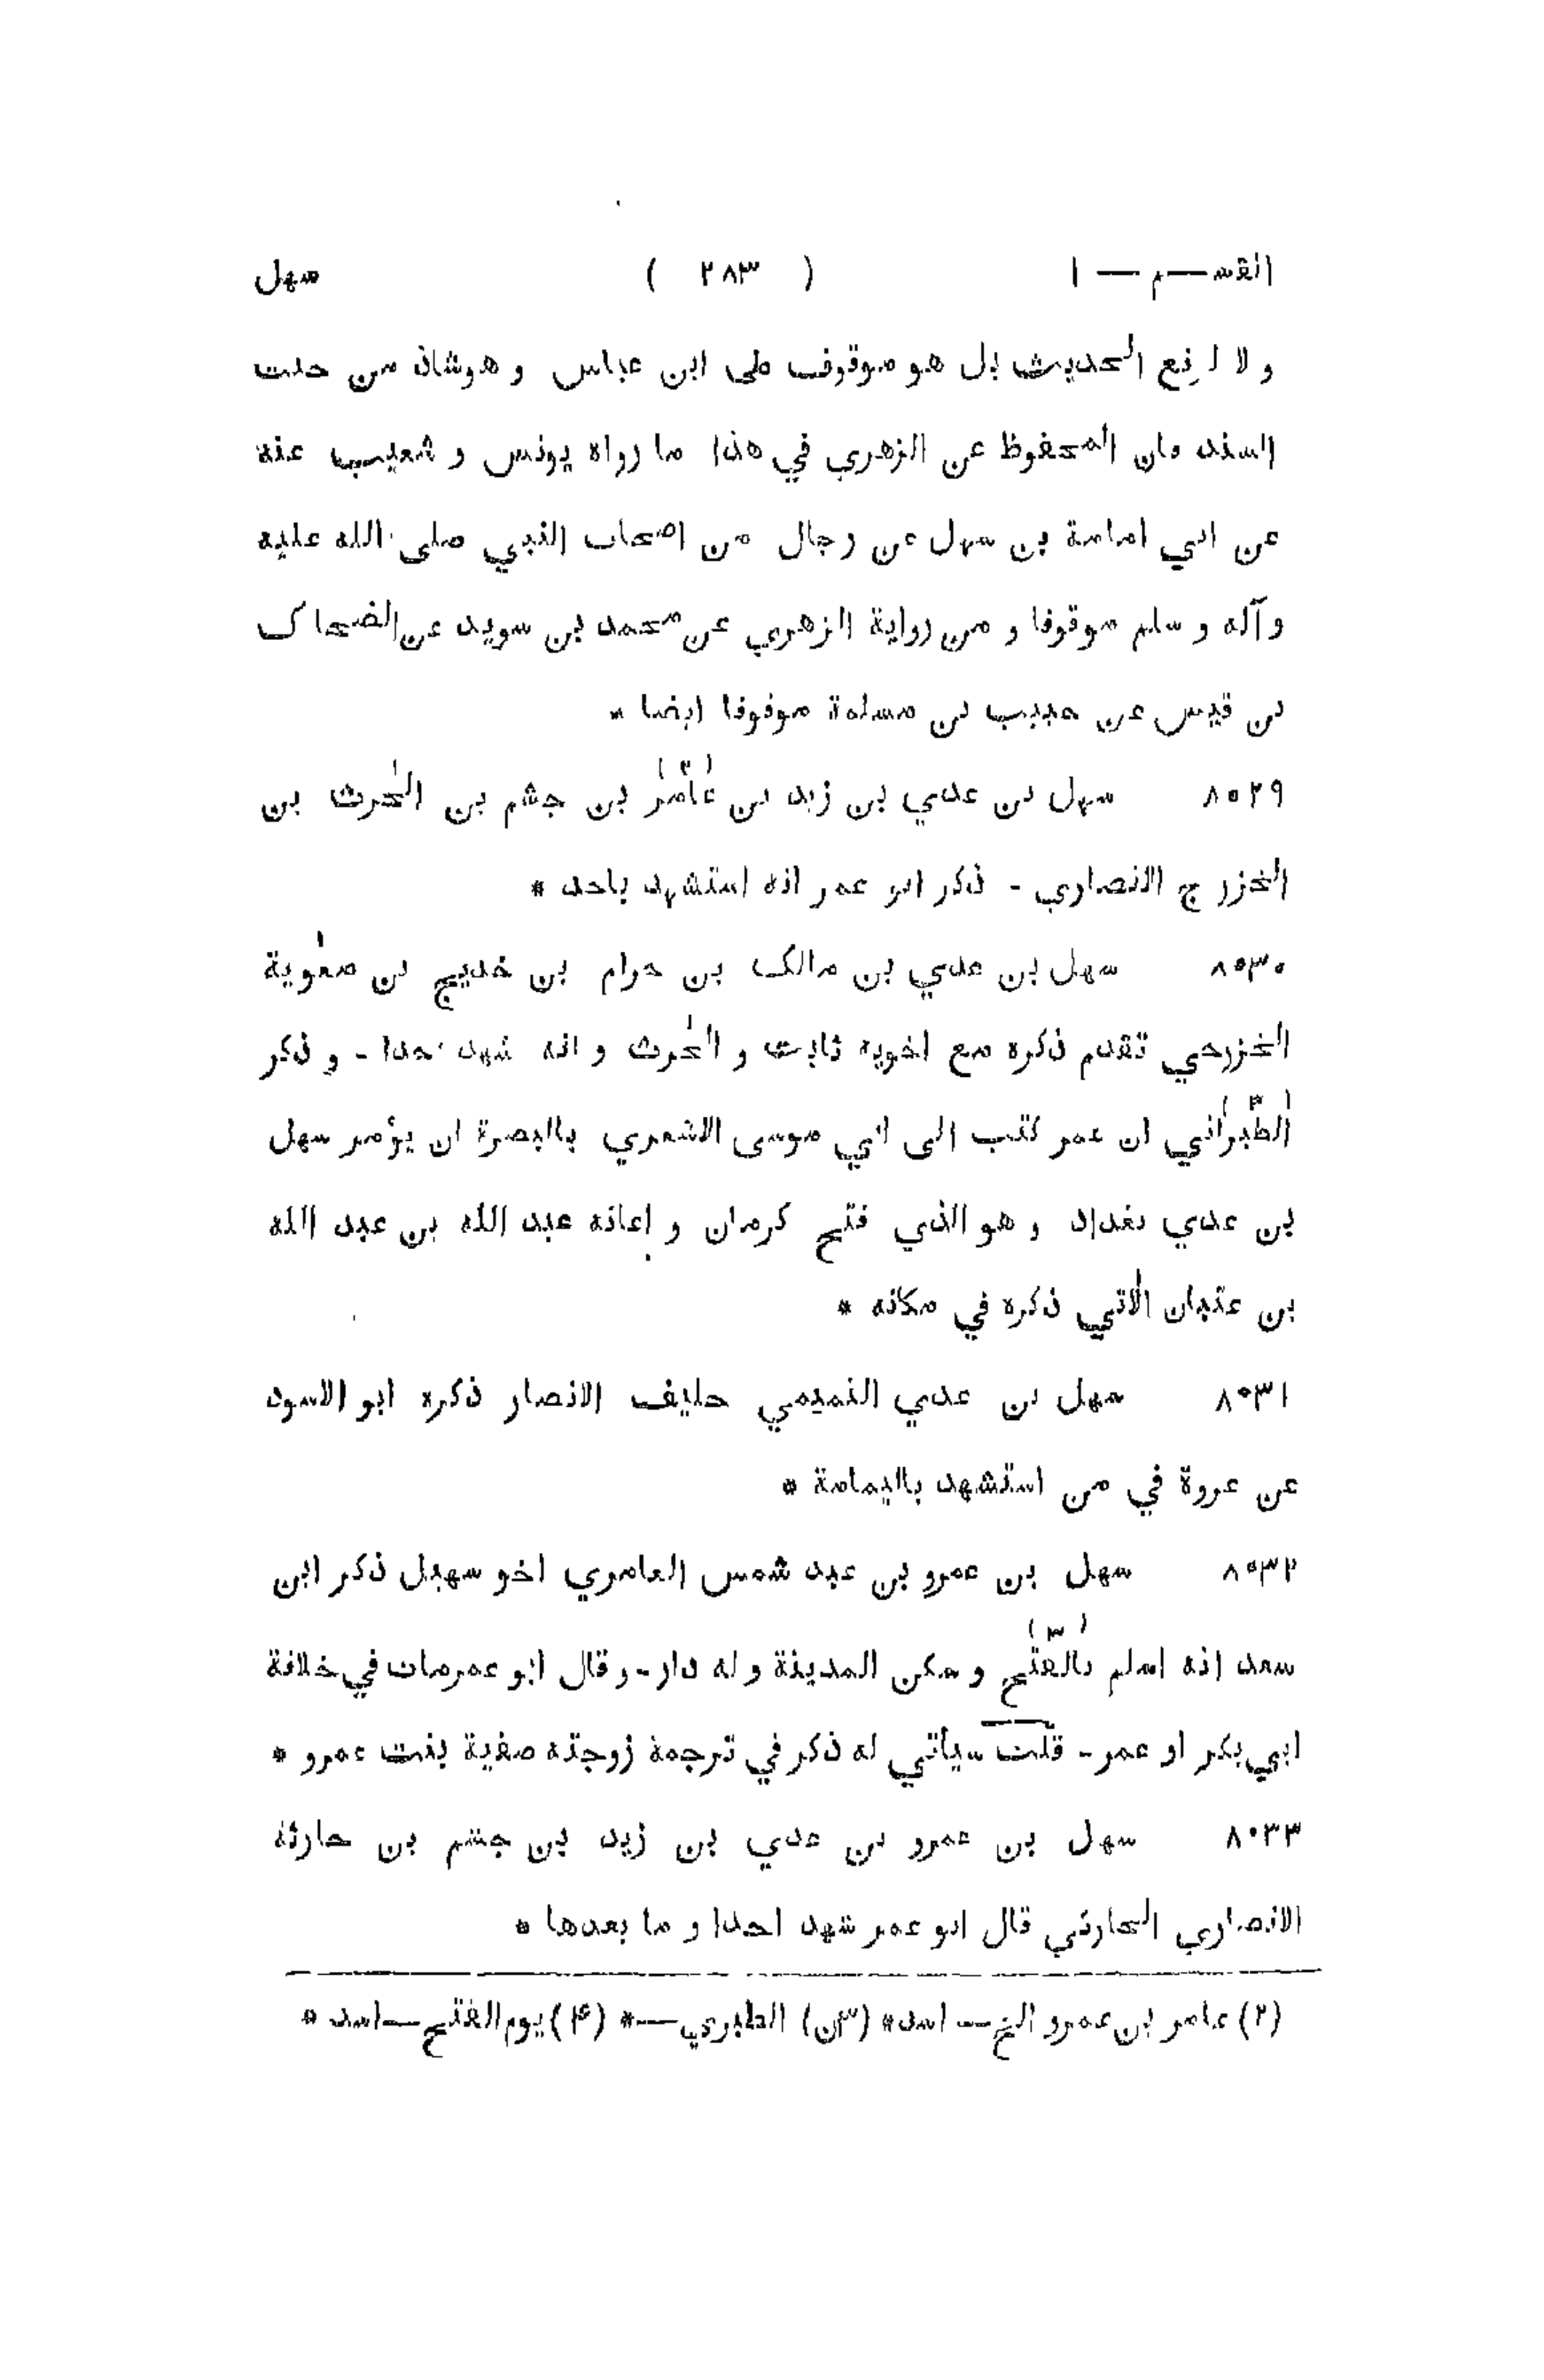 القســم — ١ ( ٢٨٣ ) سهل
و لا رفع الحديث بل هو موقوف على ابن عباس و هو شاذ من حيث
السند فان المحفوظ عن الزهري في هذا ما رواه يونس و شعيب عنه
عن ابي امامة بن سهل عن رجال من اصحاب النبي صلى الله عليه
و آله و سلم موقوفا و من رواية الزهري عن محمد بن سويد عن الضحاك
بن قيس عن حبيب بن مسلمة موقوفا ايضا *
٨٥٢٩ سهل بن عدي بن زيد بن عامر (٢) بن جشم بن الحٰرث بن
الخزرج الانصاري - ذكر ابو عمر انه استشهد باحد *
٨٥٣٠ سهل بن عدي بن مالك بن حرام بن خديج بن معٰوية
الخزرجي تقدم ذكره مع اخويه ثابت و الحٰرث و انه شهد احدا - و ذكر
الطبراني (٣) ان عمر كتب الى ابي موسى الاشعري بالبصرة ان يؤمر سهل
بن عدي بغداد و هو الذي فتح كرمان و اعانه عبد الله بن عبد الله
بن عتبان الآتي ذكره في مكانه *
٨٥٣١ سهل بن عدي التميمي حليف الانصار ذكره ابو الاسود
عن عروة في من استشهد باليمامة *
٨٥٣٢ سهل بن عمرو بن عبد شمس العامري اخو سهيل ذكر ابن
سعد انه اسلم بالفتح (٣) و سكن المدينة و له دار - و قال ابو عمر مات في خلافة
ابي بكر او عمر - قلت سيأتي له ذكر في ترجمة زوجته صفية بنت عمرو *
٨٠٣٣ سهل بن عمرو بن عدي بن زيد بن جشم بن حارثة
الانصاري الحارثي قال ابو عمر شهد احدا و ما بعدها *
(٢) عامر بن عمرو الخ — اسد * (٣ن) الطبري — * (۴) يوم الفتح — اسد *